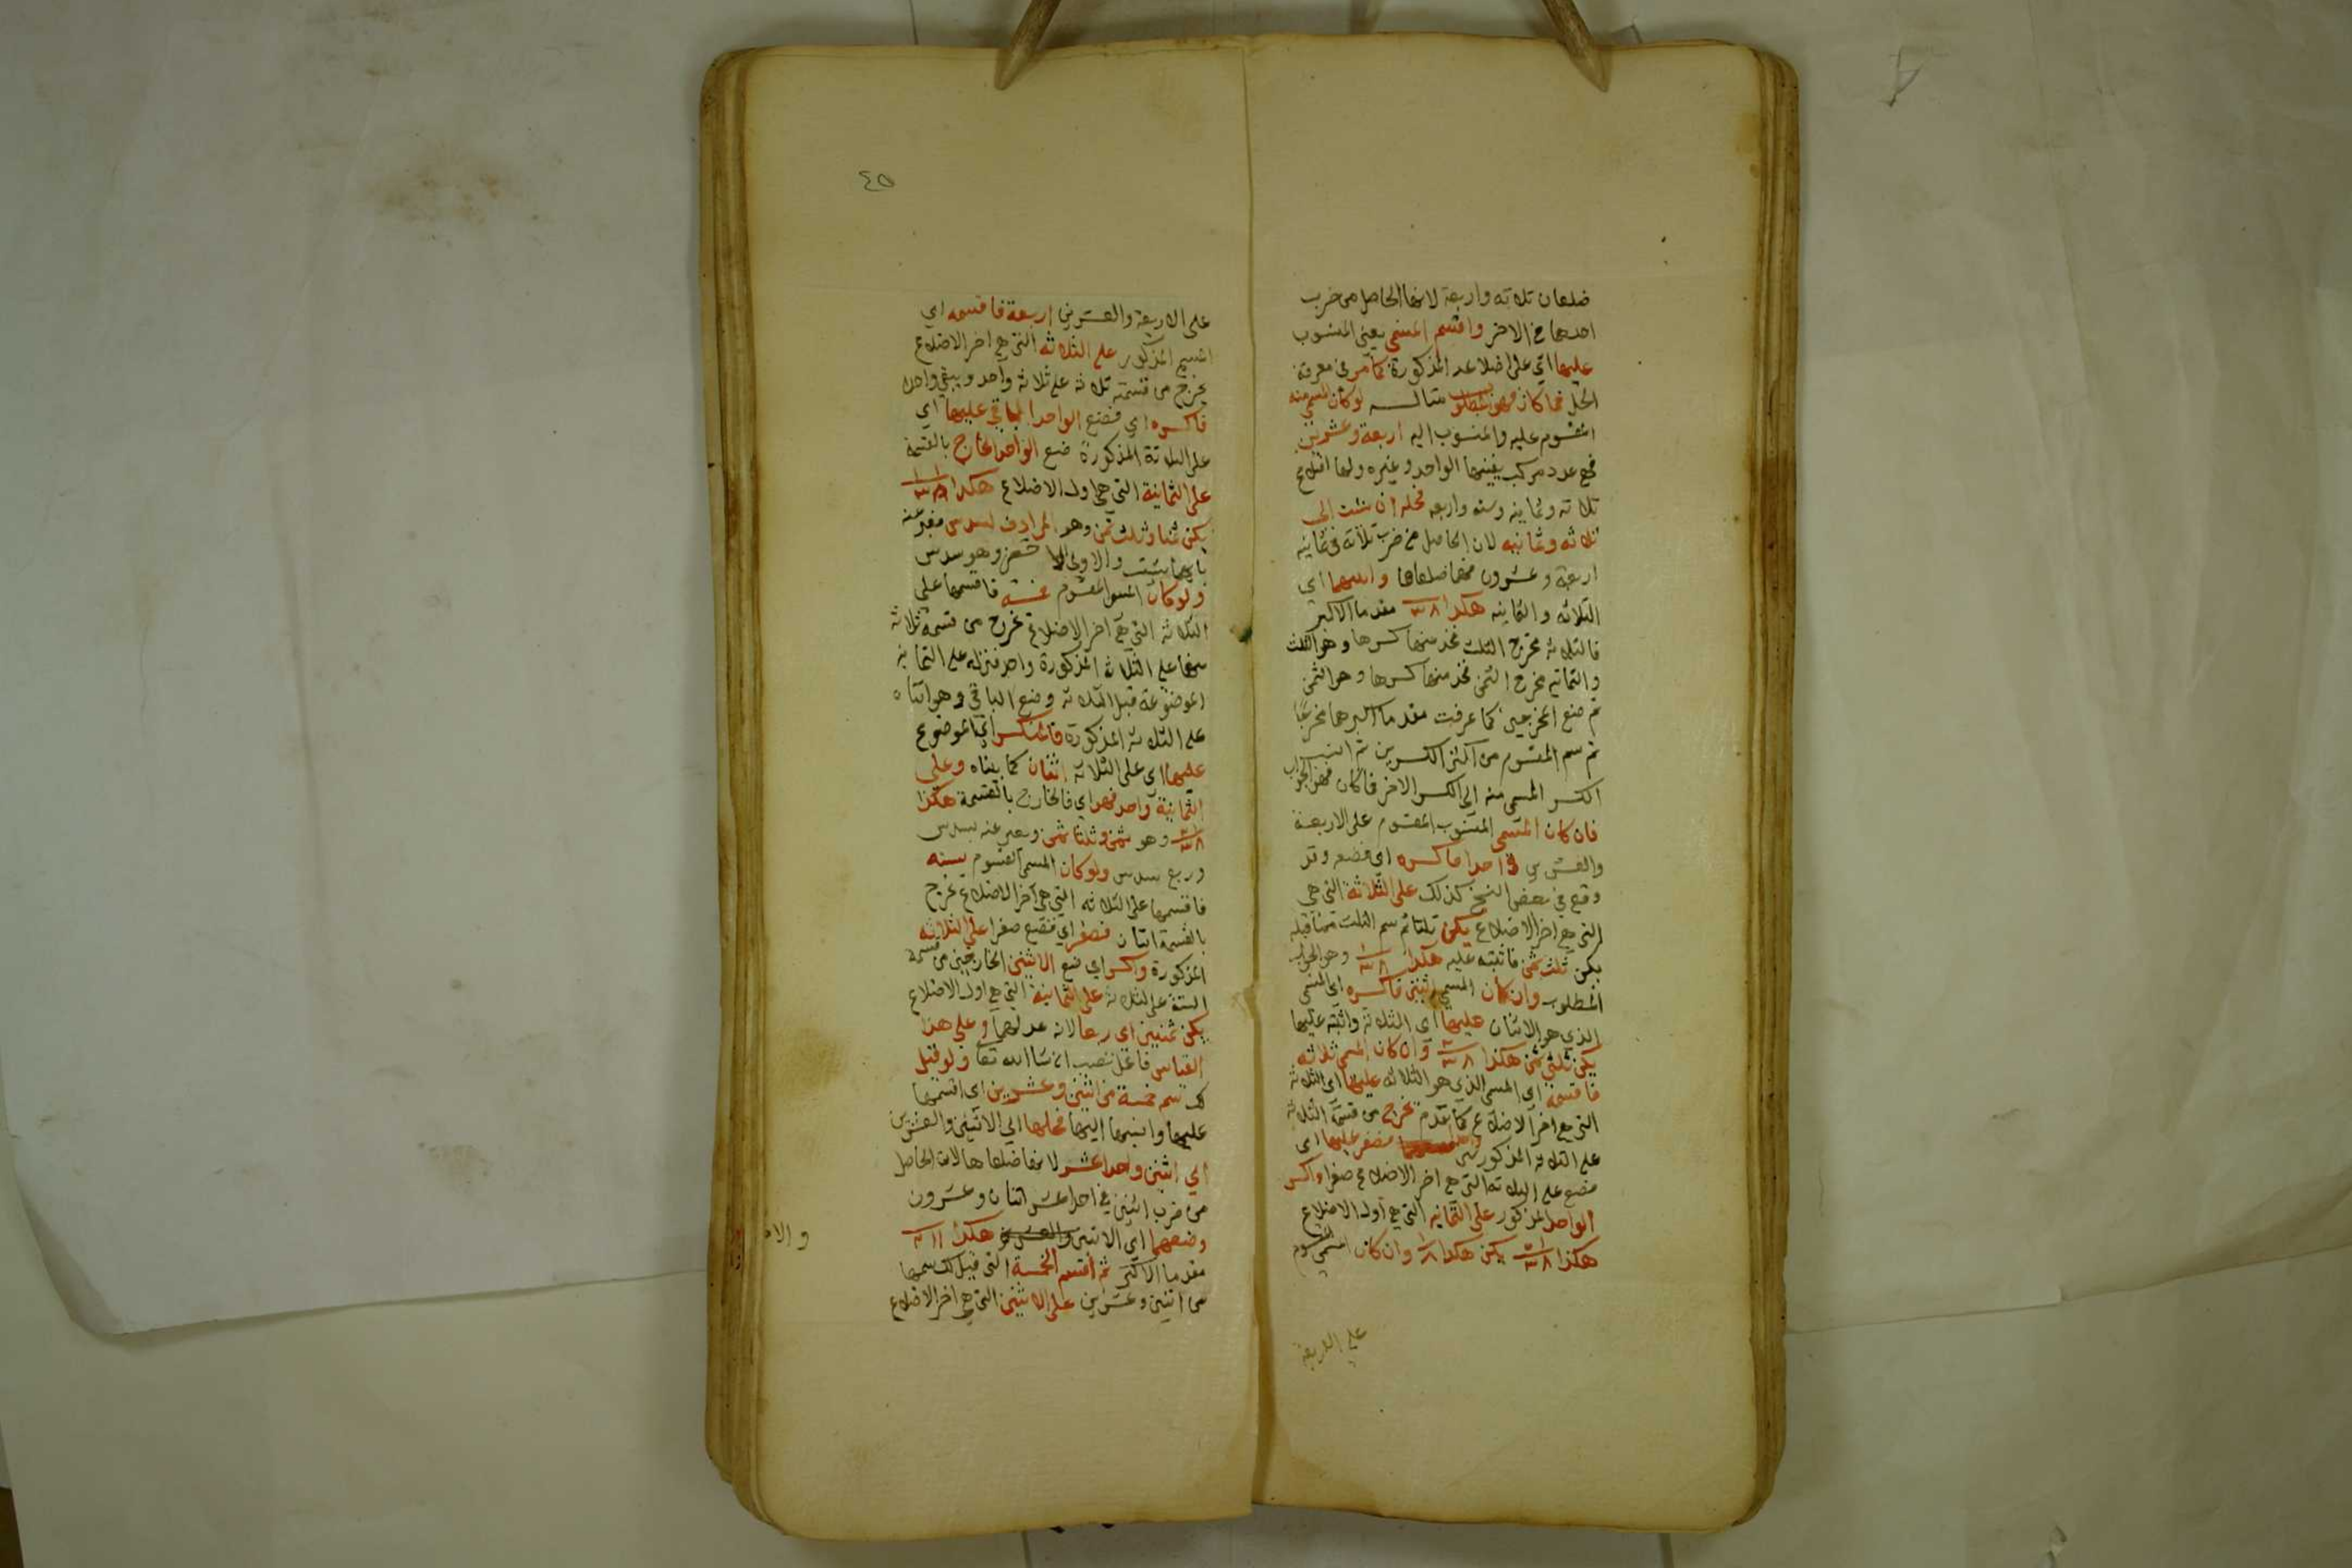 ضلعان ثلاثة واربعة لانها الحاصل من ضرب
احدهما في الاخر واقسم المسمى يعني المنسوب
عليها اي على اضلاعه المذكورة كما مر في معرفة
الحل فما كان فهو المطلوب مثاله لو كان المسمى منه
المقسوم عليه والمنسوب اليه اربعة وعشرين
فهي عدد مركب يفنيها الواحد وغيره ولها اضلاع
ثلاثة وثمانية وستة واربعة فحله ان شئت الى
ثلاثة وثمانية لان الحاصل من ضرب ثلاثة في ثمانية
اربعة وعشرون فهما ضلعاها وارسمها اي
الثلاثة والثمانية هكذا ٨ ٣ مقدما الاكبر
فالثلاثة مخرج الثلث فخذ منها كسرها وهو الثلث
والثمانية مخرج الثمن فخذ منها كسرها وهو الثمن
ثم ضع المخرجين كما عرفت مقدما اكبرهما مخرجا
ثم سم المقسوم من اكثر الكسرين ثم انسب
الكسر المسمى منه الى الكسر الاخر فما كان فهو الجواب
فان كان المسمى المنسوب المقسوم على الاربعة
والعشرين واحدا فاكسره اي فضعه وقد
وقع في بعض النسخ كذلك على الثلاثة التي هي
التي هي اخر الاضلاع يكن ثلثا ثم سم الثلث مما قبله
يكن ثلث ثمن فاثبته عليه هكذا ١ ٨ ٣ وهو الجواب
المطلوب وان كان المسمى اثنين فاكسره اي المسمى
الذي هو الاثنان عليها اي الثلاثة واثبته عليها
يكن ثلثي ثمن هكذا ٢ ٨ ٣ وان كان المسمى ثلاثة
فاقسمه اي المسمى الذي هو الثلاثة عليها اي الثلاثة
التي هي اخر الاضلاع كما تقدم يخرج من قسمة الثلاثة
على الثلاثة المذكورة فصفر عليها اي
فضع على الثلاثة التي هي اخر الاضلاع صفرا واكسر
الواحد المذكور على الثمانية التي هي اول الاضلاع
هكذا ١ ٨ ٣ يكن هكذا ١ ٨ وان كان المسمى المقسوم
على الاربعة
٤٥
على الاربعة والعشرين اربعة فاقسمه اي
المسمى المذكور على الثلاثة التي هي اخر الاضلاع
يخرج من قسمته ثلاثة على ثلاثة واحد ويبقى واحد
فاكسره اي فضع الواحد الباقي عليها اي
على الثلاثة المذكورة ضع الواحد الخارج بالقسمة
على الثمانية التي هي اول الاضلاع هكذا ١ ١ ٨ ٣
يكن ثمنا وثلث ثمن وهو المرادف لسدس فعبر عنه
بايهما شئت والاولى الاختصار وهو سدس
ولو كان المسمى المقسوم خمسة فاقسمها على
الثلاثة التي هي اخر الاضلاع يخرج من قسمة ثلاثة
منها على الثلاثة المذكورة واحد فنزله على الثمانية
الموضوعة قبل الثلاثة وضع الباقي وهو اثنان
على الثلاثة المذكورة فالمنكسر اي الموضوع
عليها اي على الثلاثة اثنان كما بيناه وعلى
الثمانية واحد فهو اي فالخارج بالقسمة هكذا
١ ٢ ٨ ٣ وهو ثمن وثلثا ثمن ويعبر عنه بسدس
وربع سدس ولو كان المسمى المقسوم ستة
فاقسمها على الثلاثة التي هي اخر الاضلاع يخرج
بالقسمة اثنان فصفر اي فتضع صفرا على الثلاثة
المذكورة واكسر اي ضع الاثنين الخارجين من قسمة
الستة على الثلاثة على الثمانية التي هي اول الاضلاع
يكن ثمنين اي ربعا لانه عدلهما وعلى هذا
القياس فاعمل تصب ان شا الله تعا ولو قيل
لك سم خمسة من اثنين وعشرين اي اقسمها
عليها وانسبها اليها فحلها اي الاثنين والعشرين
الى اثنين واحد عشر لانهما ضلعاها لان الحاصل
من ضرب اثنين في احد عشر اثنان وعشرون
وضعهما اي الاثنين والعشرين هكذا ١١ ٢
مقدما الاكبر ثم اقسم الخمسة التي قيل لك سمها
من اثنين وعشرين على الاثنين التي هي اخر الاضلاع